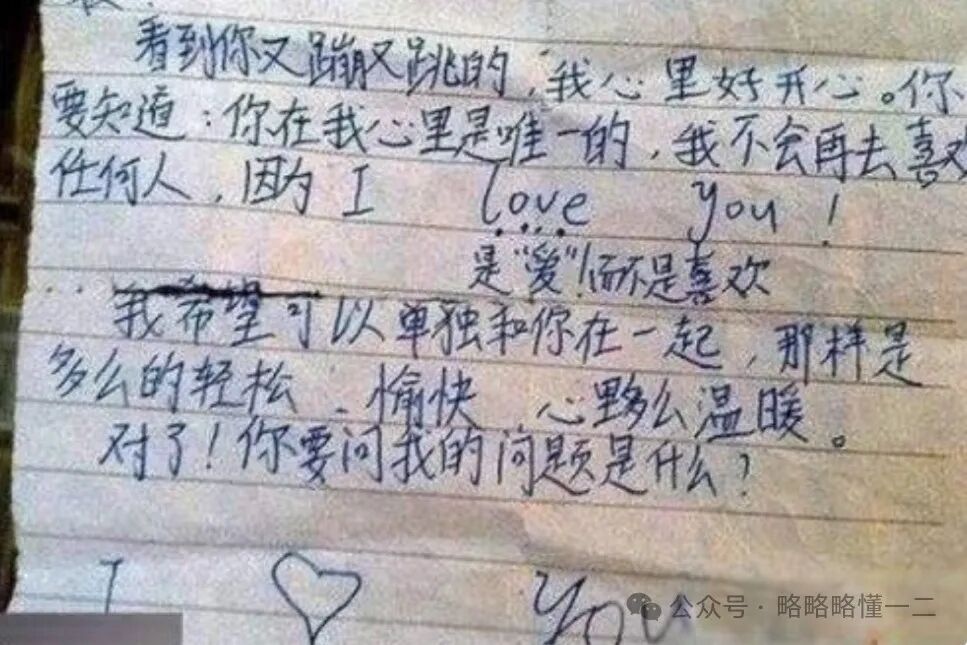 看到你又蹦又跳的,我心里好开心。你
要知道:你在我心里是唯一的,我不会再去喜欢
任何人,因为 I love you!
是“爱”!而不是喜欢
我希望可以单独和你在一起,那样是
多么的轻松、愉快 心里多么温暖。
对了!你要问我的问题是什么?
I ♡ You
公众号·略略略懂一二